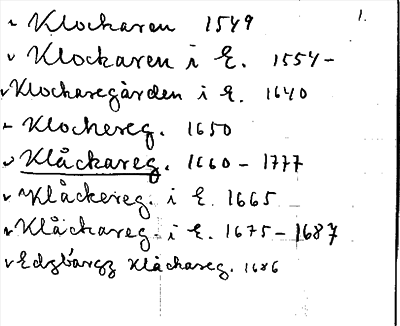 Klockaren 1549 1.
v Klockaren i E. 1554-
v Klockaregården i E. 1640
Klockereg. 1650
v Klåckareg. 1660-1777
v Klåckereg. i E. 1665
v Klåckareg. i E. 1675-1687
v Edzbärgz Klåckareg. 1686